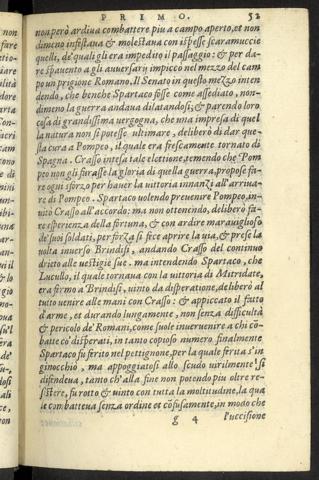 PRIMO. 52
non però ardiua combattere piu a campo aperto, et non
dimeno infestaua & molestaua con ispesse scaramuccie
quelli, de' quali gli era impedito il passaggio: & per da-
re spauento a gli auuersarij impiccò nel mezzo del cam
po un prigione Romano. Il Senato in questo mezzo inten
dendo, che benche Spartaco fosse come assediato, non-
dimeno la guerra andaua dilatandosi; & parendo loro
cosa di grandissima vergogna, che una impresa di quel
la natura non si potesse ultimare, deliberò di dar que-
sta cura a Pompeo, il quale era frescamente tornato di
Spagna. Crasso intesa tale elettione, temendo che Pom
peo non gli furasse la gloria di quella guerra, propose fa-
re ogni sforzo per hauer la vittoria innanzi all'arriua-
re di Pompeo. Spartaco uolendo preuenire Pompeo, in-
uitò Crasso all'accordo: ma non ottenendo, deliberò fa-
re esperienza della fortuna, & con ardire marauiglioso
de' suoi soldati, per forza si fece aprire la uia, & prese la
uolta inuerso Brindisi, andando Crasso del continuo
drieto alle uestigie sue. ma intendendo Spartaco, che
Lucullo, il quale tornaua con la uittoria di Mitridate,
era fermo a Brindisi, uinto da disperatione, deliberò al
tutto uenire alle mani con Crasso: & appiccato il fatto
d'arme, et durando lungamente, non senza difficultà
& pericolo de' Romani, come suole interuenire a chi cō
batte co' disperati, in tanto copioso numero finalmente
Spartaco fu ferito nel pettignone, per la quale ferita s'in
ginocchiò, ma appoggiatosi allo scudo uirilmente si
difendeua, tanto ch'alla fine non potendo piu oltre re-
sistere, fu rotto & uinto con tutta la moltitudine, la qua
le combatteua senza ordine et cōfusamente, in modo che
g 4 l'uccisione